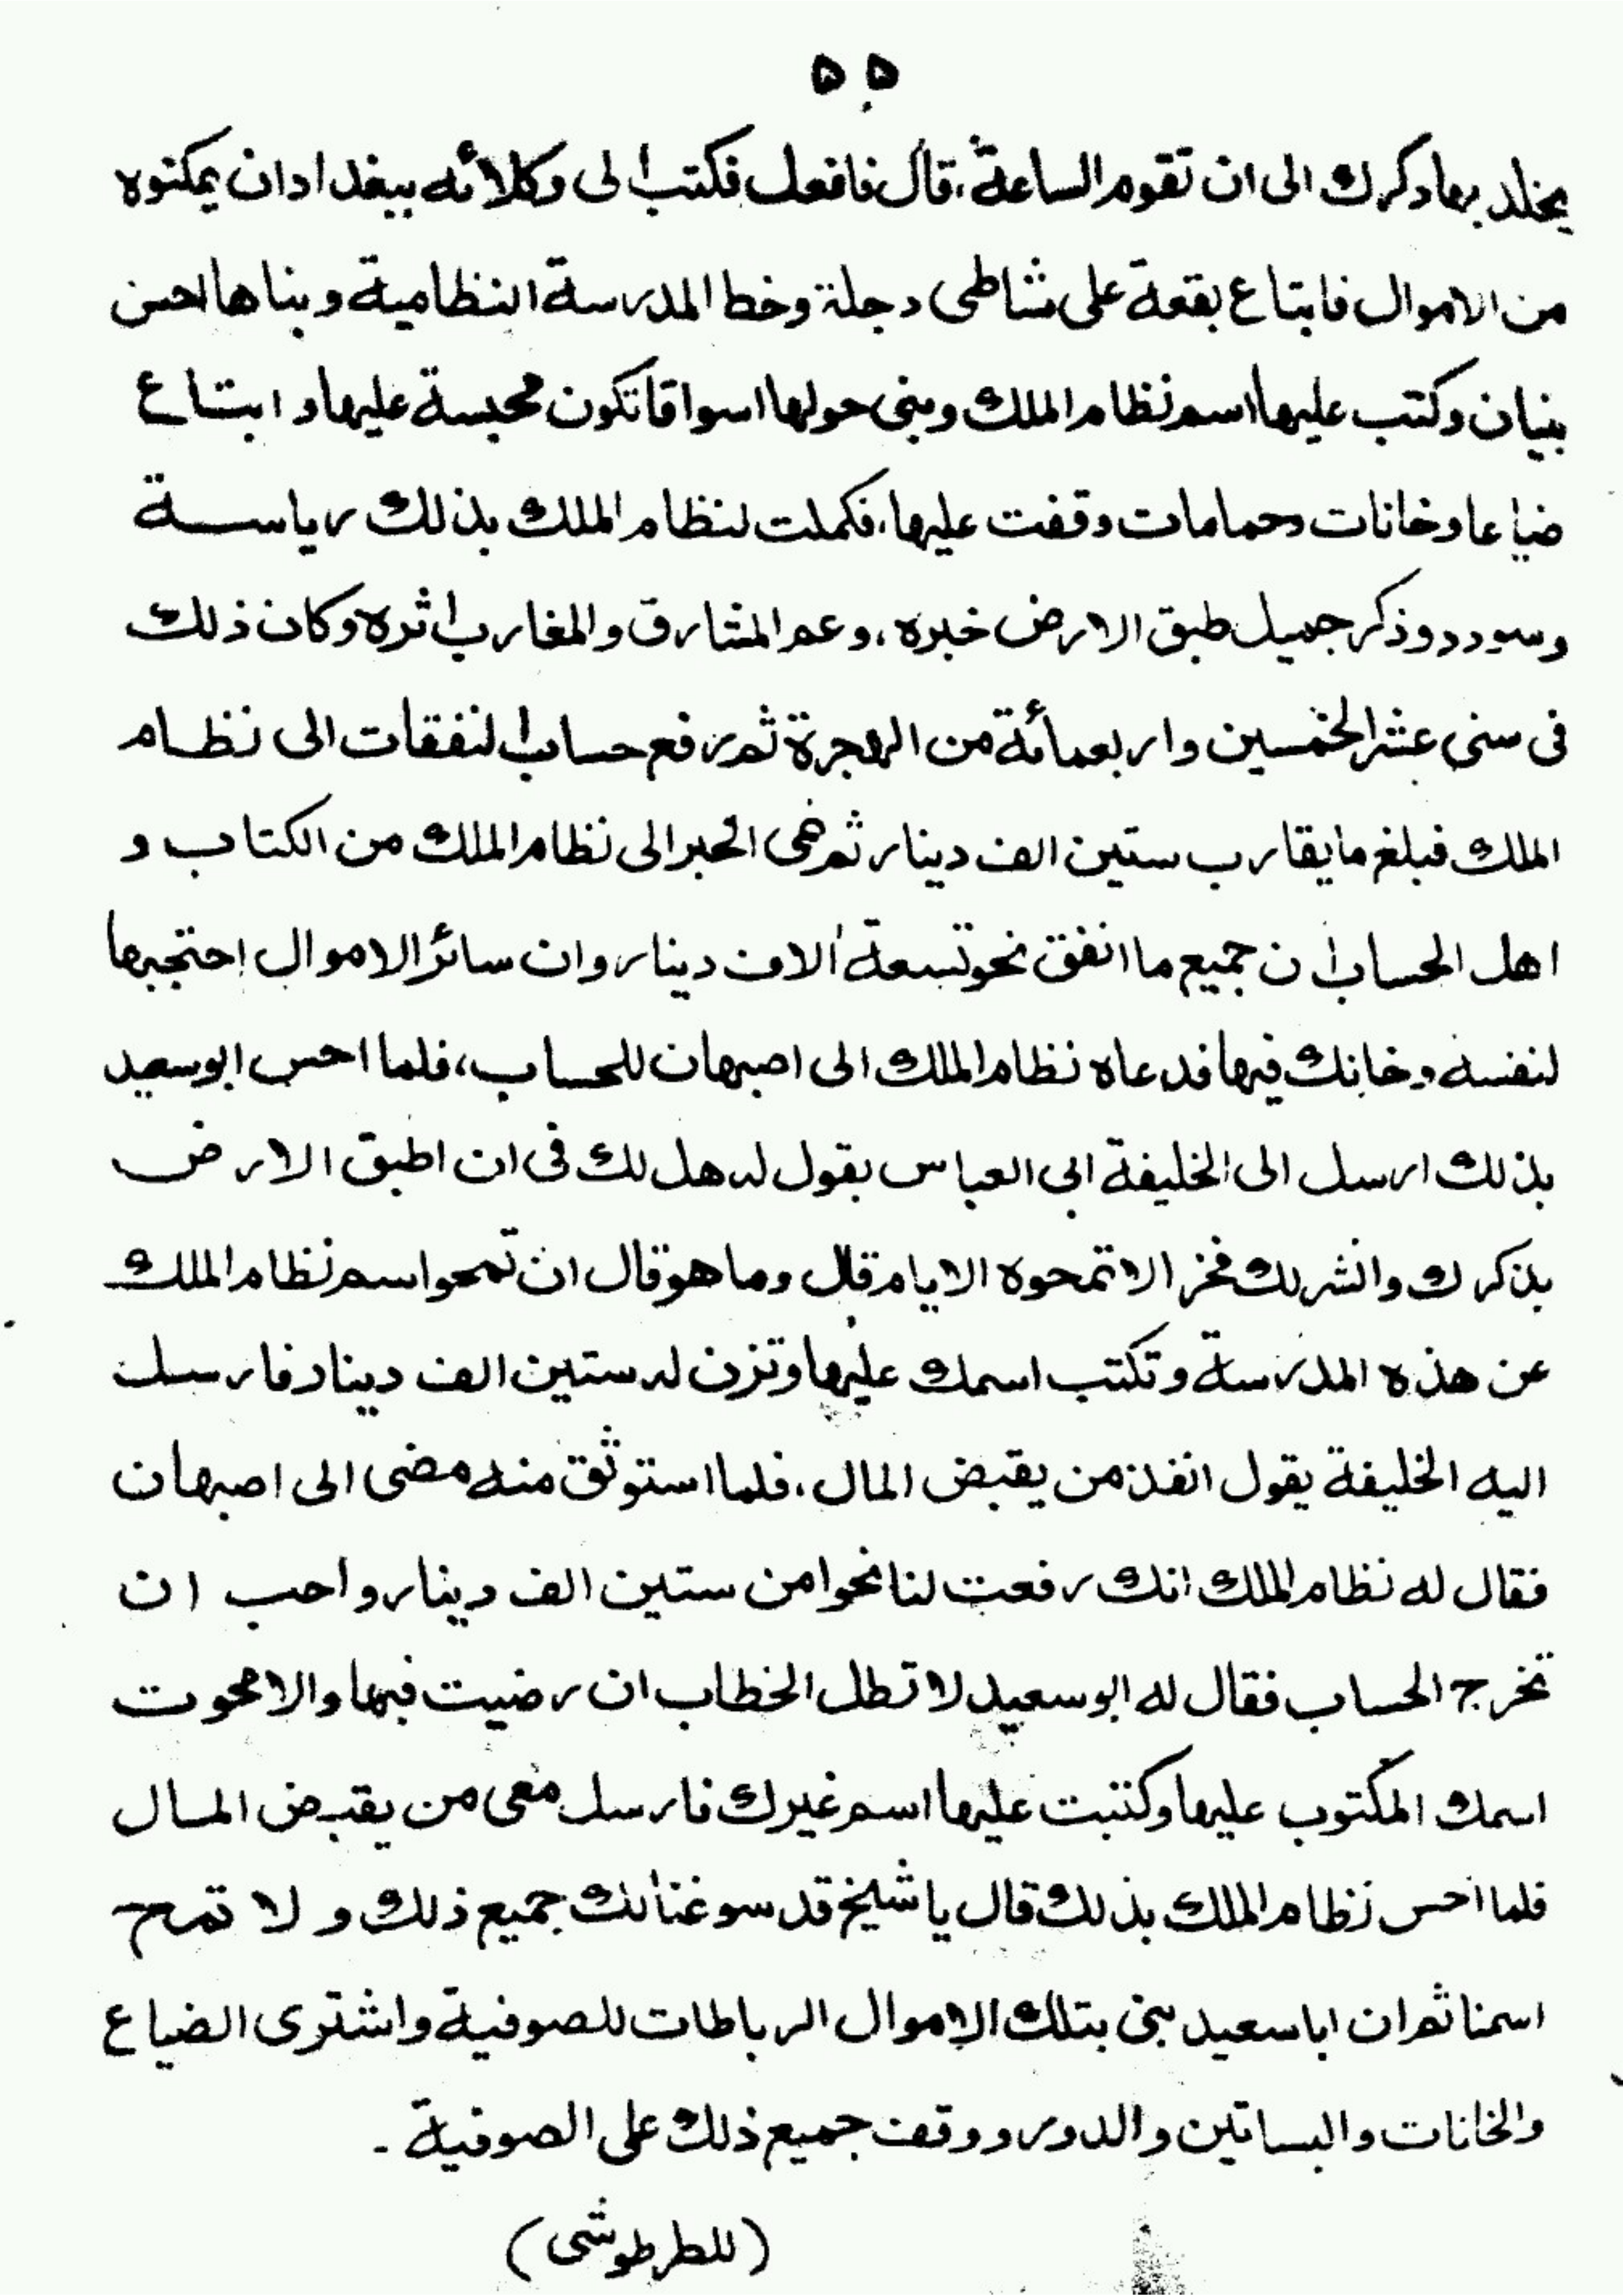 ۵۵
يخلد بها ذكرك الى ان تقوم الساعة، قال فافعل فكتب الى وكلائه ببغداد ان يمكنوه
من الاموال فابتاع بقعة على شاطى دجلة وخط المدرسة النظامية وبناها احسن
بنيان وكتب عليها اسم نظام الملك وبنى حولها اسواقا تكون محبسة عليها و ابتاع
ضياعا وخانات وحمامات وقفت عليها، فكملت لنظام الملك بذلك رياسة
وسودد وذكر جميل طبق الارض خبره، وعم المشارق والمغارب اثره وكان ذلك
فى سنى عشر الخمسين واربعمائة من الهجرة ثم رفع حساب النفقات الى نظام
الملك فبلغ ما يقارب ستين الف دينار ثم نمى الخبر الى نظام الملك من الكتاب و
اهل الحساب ان جميع ما انفق نحو تسعة آلاف دينار وان سائر الاموال احتجبها
لنفسه وخانك فيها فدعاه نظام الملك الى اصبهان للحساب، فلما احس ابو سعيد
بذلك ارسل الى الخليفة ابى العباس يقول له هل لك فى ان اطبق الارض
بذكرك وانشر لك فخر الا تمحوه الايام قال وما هو قال ان تمحو اسم نظام الملك
عن هذه المدرسة وتكتب اسمك عليها وتزن له ستين الف دينار فارسل
اليه الخليفة يقول انفذ من يقبض المال، فلما استوثق منه مضى الى اصبهان
فقال له نظام الملك انك رفعت لنا نحوا من ستين الف دينار واحب ان
تخرج الحساب فقال له ابو سعيد لا تطل الخطاب ان رضيت فبها والا محوت
اسمك المكتوب عليها وكتبت عليها اسم غيرك فارسل معى من يقبض المال
فلما احس نظام الملك بذلك قال يا شيخ قد سوغنا لك جميع ذلك و لا تمح
اسمنا ثم ان ابا سعيد بنى بتلك الاموال الرباطات للصوفية واشترى الضياع
والخانات والبساتين والدور ووقف جميع ذلك على الصوفية -
(للطرطوشى)